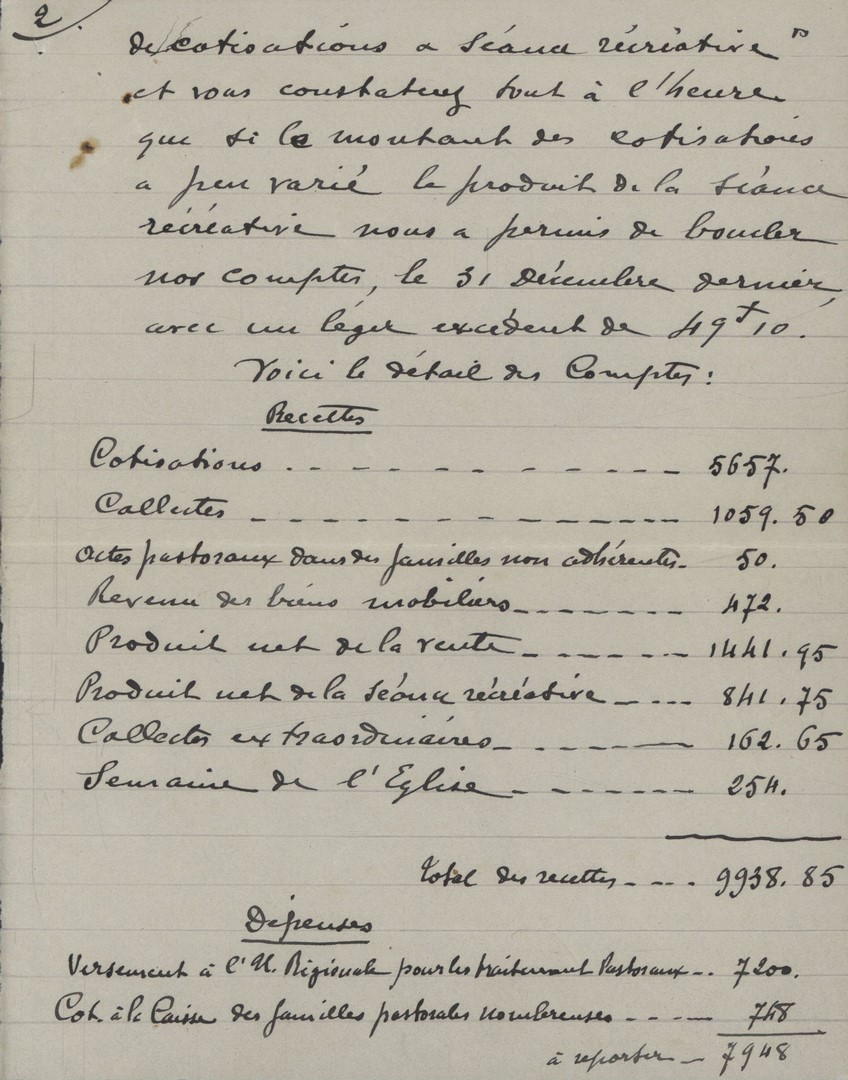 2
de cotisations & séance récréative"
et vous constaterez tout à l'heure
que si le montant des cotisations
a peu varié le produit de la séance
récréative nous a permis de boucler
nos comptes, le 31 Décembre dernier,
avec un léger excédent de 49f10.
Voici le détail des Comptes :
Recettes
Cotisations . - - - - - - - - - 5657.
Collectes - - - - - - - - - - - 1059.50
Actes pastoraux dans des familles non adhérentes - 50.
Revenu des biens mobiliers - - - - - - 472.
Produit net de la vente - - - - - - 1441.95
Produit net de la séance récréative - - - - 841.75
Collectes extraordinaires - - - - - 162.65
Semaine de l'Eglise - - - - - - - 254.
Total des recettes - - - - 9938.85
Dépenses
Versement à l'U. Régionale pour les traitement Pastoraux - . 7200.
Cot. à la Caisse des familles pastorales nombreuses - - - - 748
à reporter - 7948